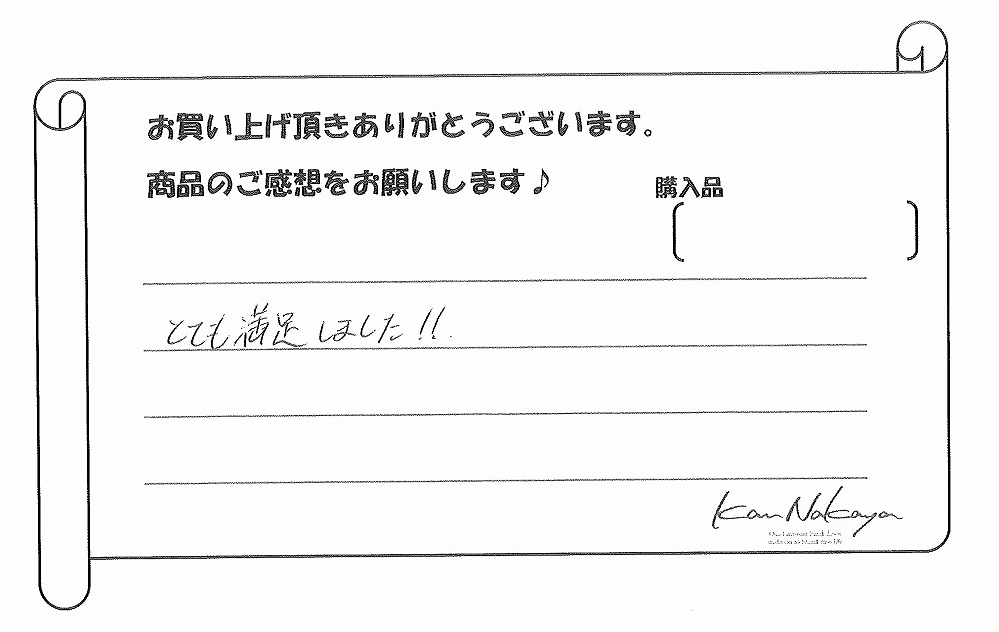 お買い上げ頂きありがとうございます。
商品のご感想をお願いします♪
購入品
〔 〕
とても満足しました!!
Kan Nakaya